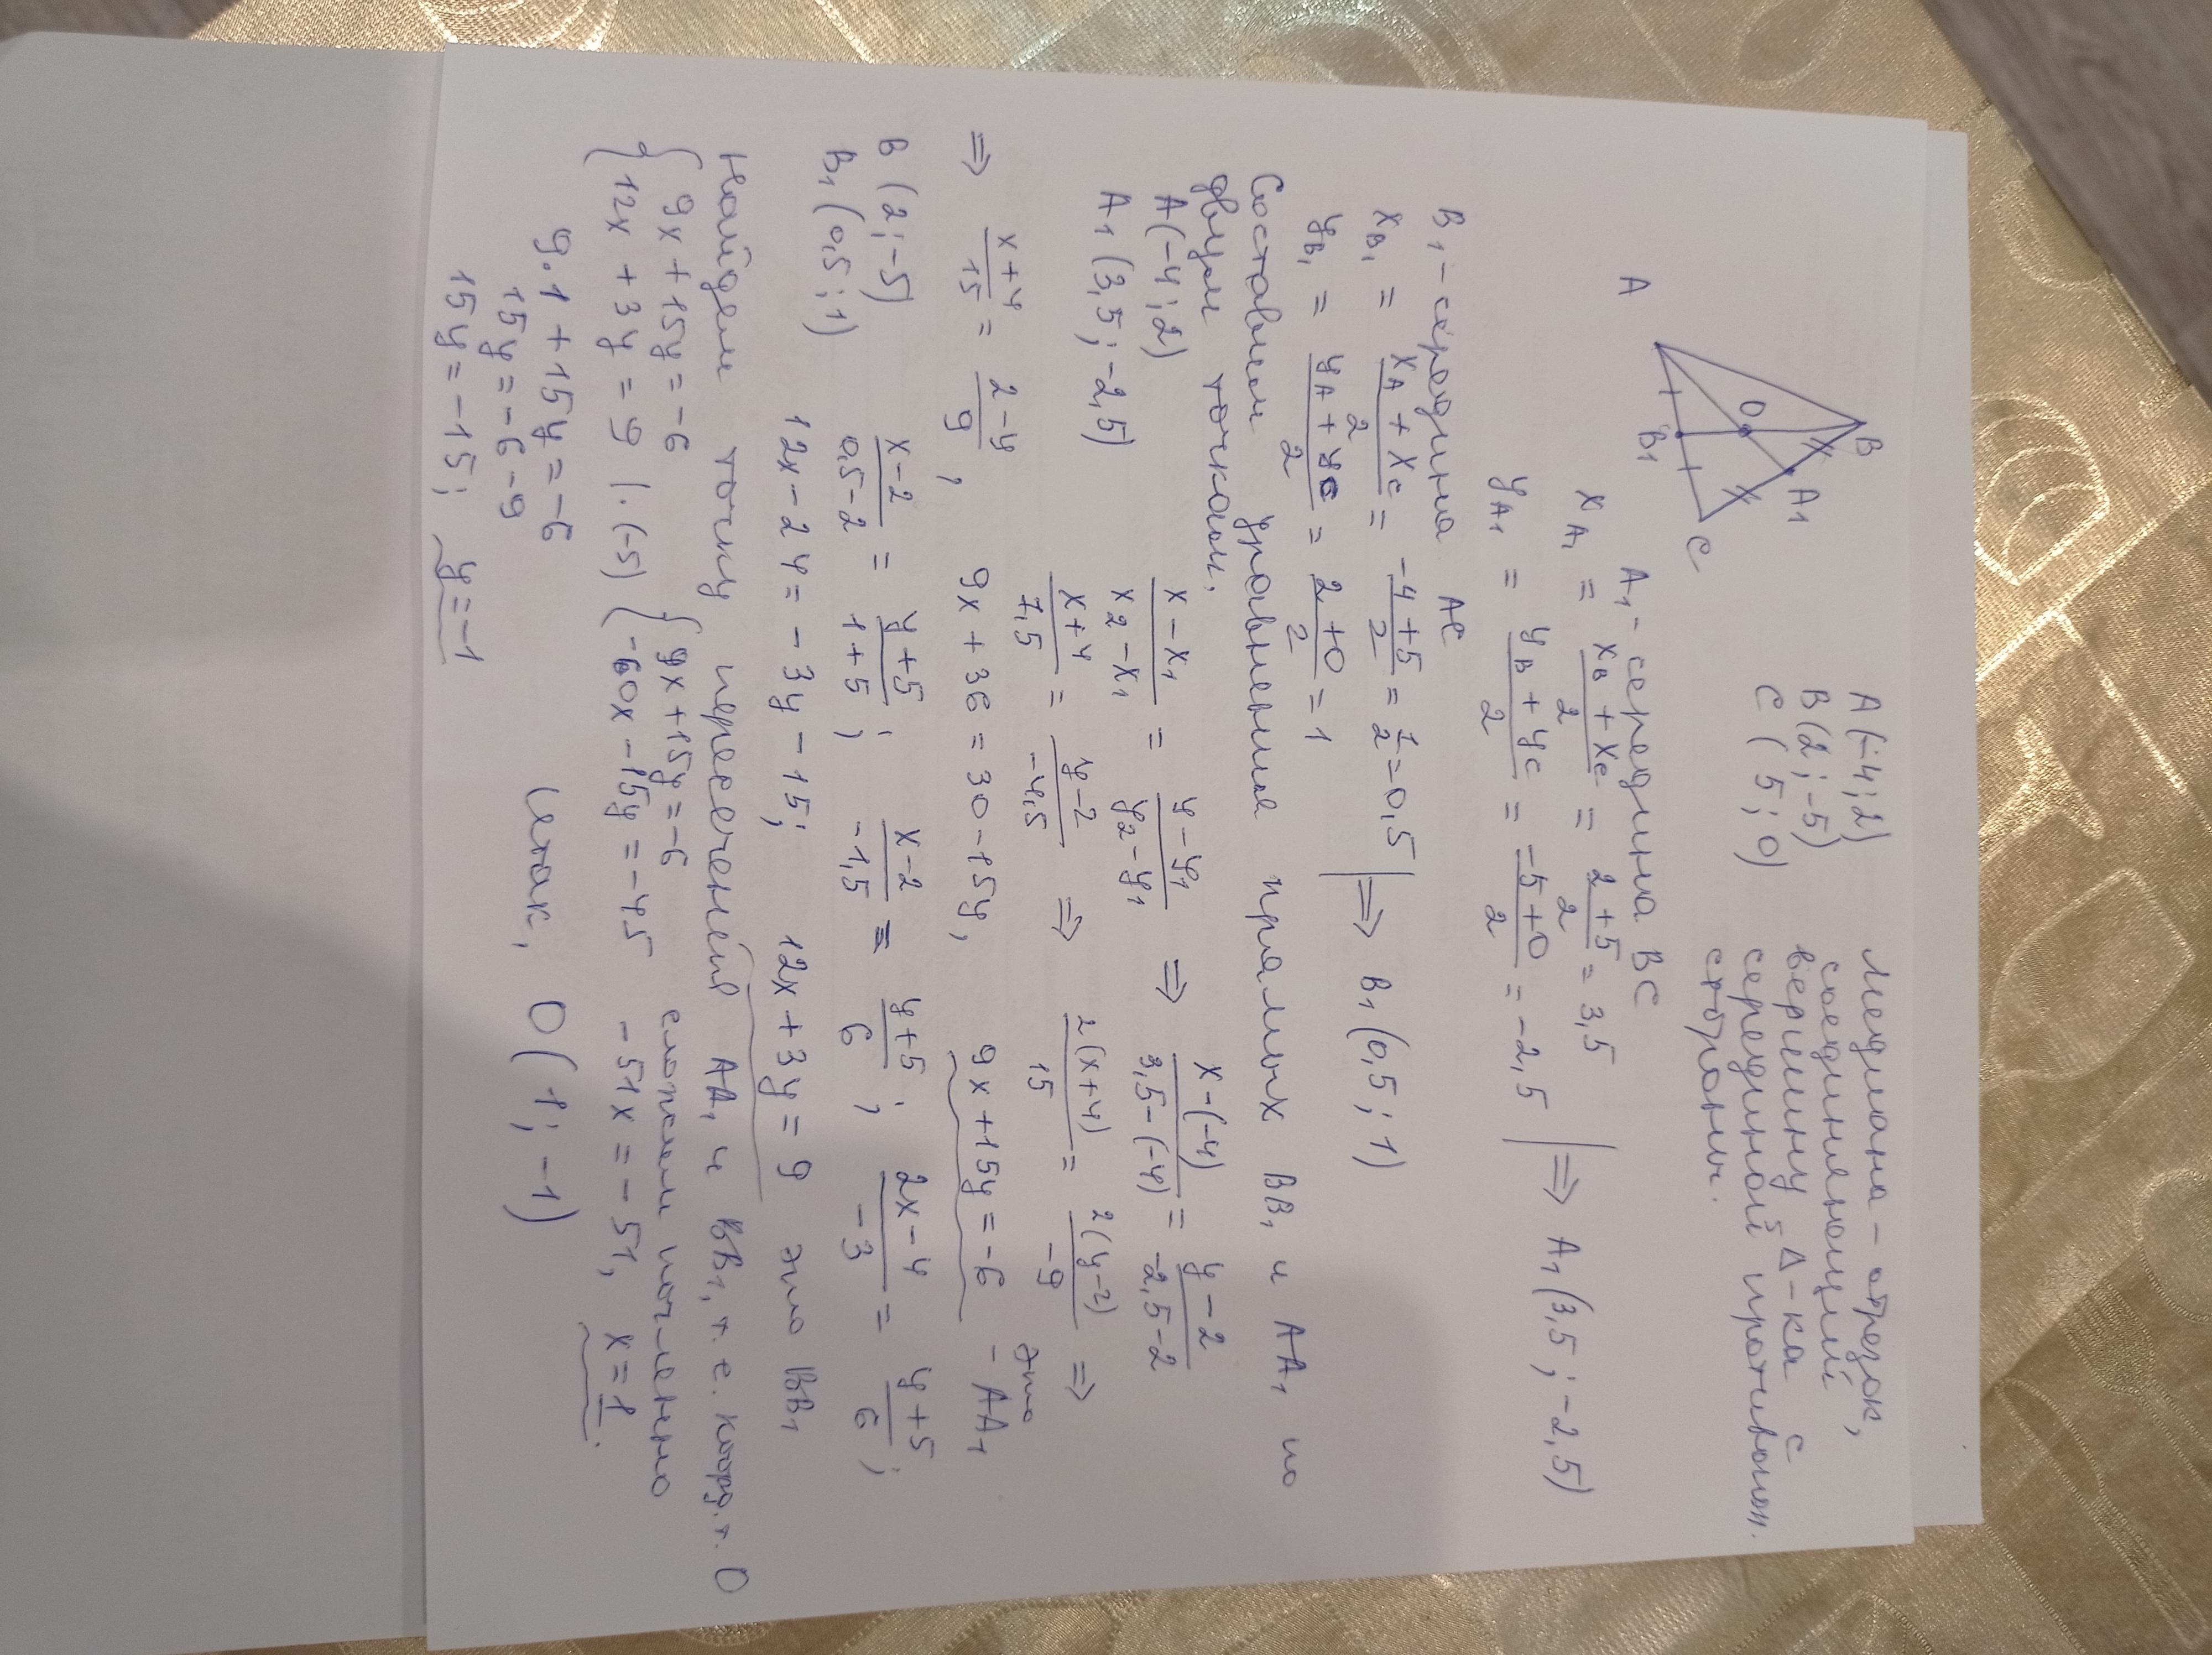 A(-4; 2)
B(2; -5)
C(5; 0)
Медиана - отрезок,
соединяющий
вершину Δ-ка с
серединой противопол.
стороны.
B
A1
O
A
B1
C
A1 - середина BC
xA1 = (xB + xC)/2 = (2+5)/2 = 3,5
yA1 = (yB + yC)/2 = (-5+0)/2 = -2,5 | ⇒ A1(3,5; -2,5)
B1 - середина AC
xB1 = (xA + xC)/2 = (-4+5)/2 = 1/2 = 0,5
yB1 = (yA + yC)/2 = (2+0)/2 = 1 | ⇒ B1(0,5; 1)
Составим уравнение прямых BB1 и AA1 по
двум точкам.
A(-4; 2)
A1(3,5; -2,5)
(x-x1)/(x2-x1) = (y-y1)/(y2-y1) ⇒ (x-(-4))/(3,5-(-4)) = (y-2)/(-2,5-2)
(x+4)/7,5 = (y-2)/(-4,5) ⇒ 2(x+4)/15 = 2(y-2)/(-9) ⇒
⇒ (x+4)/15 = (2-y)/9, 9x + 36 = 30 - 15y, 9x + 15y = -6 - это AA1
B(2; -5)
B1(0,5; 1)
(x-2)/(0,5-2) = (y+5)/(1+5); (x-2)/(-1,5) = (y+5)/6; (2x-4)/(-3) = (y+5)/6;
12x - 24 = -3y - 15; 12x + 3y = 9 это BB1
Найдем точку пересечения AA1 и BB1, т.е. коорд. т. O
{ 9x + 15y = -6
{ 12x + 3y = 9 |·(-5)
{ 9x + 15y = -6
{ -60x - 15y = -45
сложим почленно
-51x = -51, x = 1.
9·1 + 15y = -6
15y = -6-9
15y = -15; y = -1
Итак, O(1; -1)